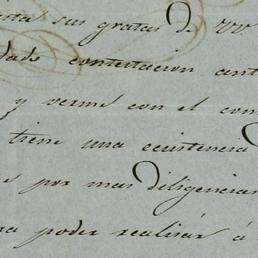 sus gratas de VV
contestacion ant
y verme con el con
tiene una existencia
por mas diligencias
poder realizar á